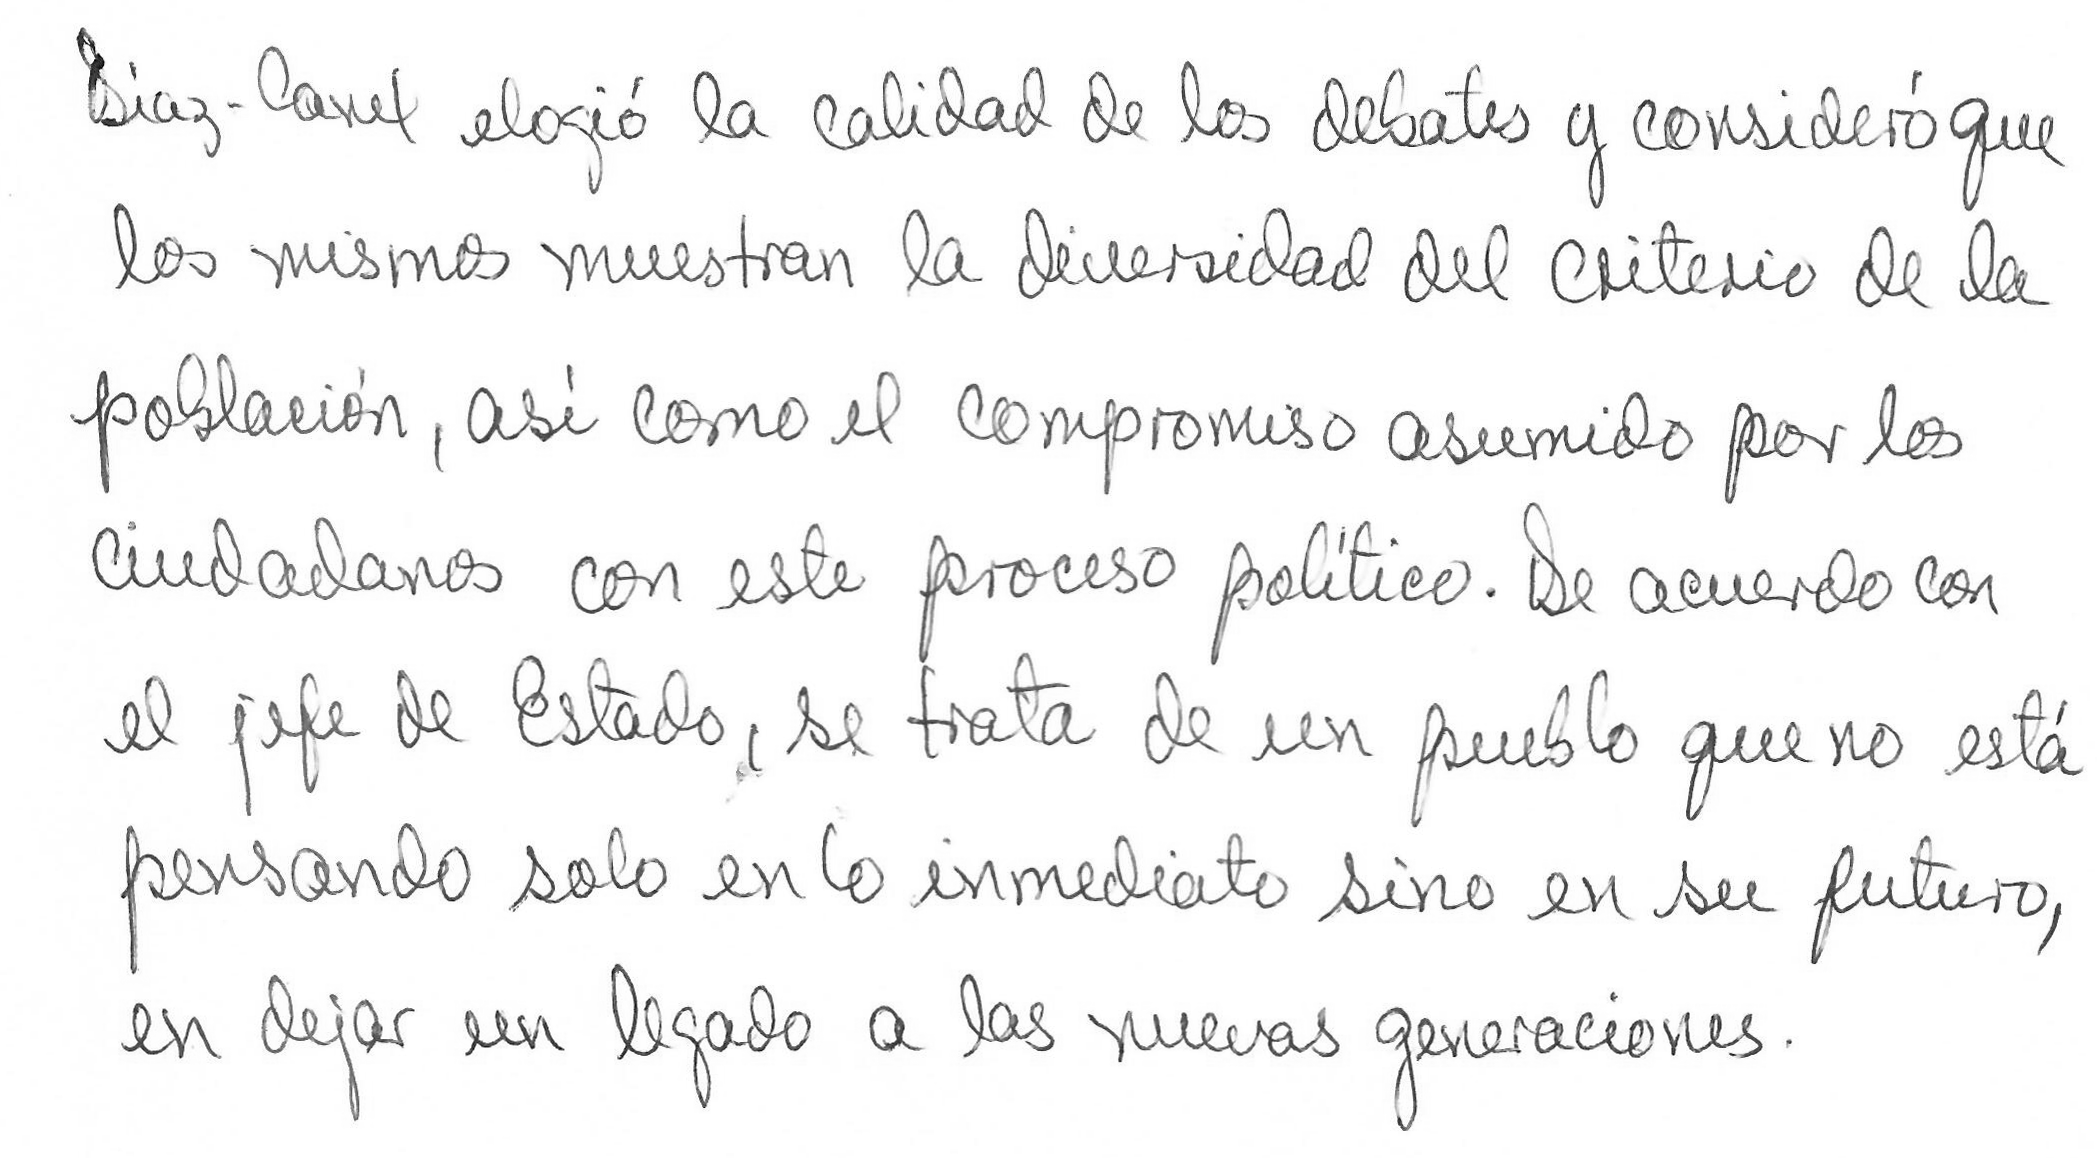 Díaz-Canel elogió la calidad de los debates y consideró que
los mismos muestran la diversidad del criterio de la
población, así como el compromiso asumido por los
ciudadanos con este proceso político. De acuerdo con
el jefe de Estado, se trata de un pueblo que no está
pensando solo en lo inmediato sino en su futuro,
en dejar un legado a las nuevas generaciones.